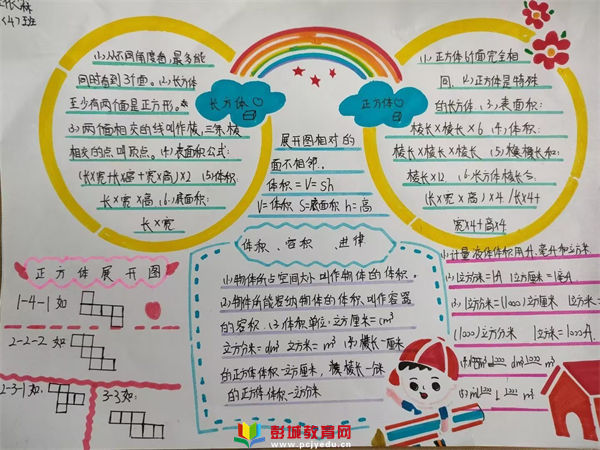 (4)班
(1)从不同角度看,最多能
同时看到3个面。(2)长方体
至少有两个面是正方形。
(3)两个面相交的线叫作棱,三条棱
相交的点叫顶点。(4)表面积公式:
(长×宽+长×高+宽×高)×2 (5)体积
长×宽×高 (6)底面积:
长×宽
长方体
正方体
展开图相对的
面不相邻。
体积=V=Sh
V=体积 S=底面积 h=高
(1)正方体6个面完全相
同 (2)正方体是特殊
的长方体 (3)表面积:
棱长×棱长×6 (4)体积:
棱长×棱长×棱长 (5)棱长和:
棱长×12 (6)长方体棱长和:
(长×宽×高)×4/长×4+
宽×4+高×4
正方体展开图
1-4-1如
2-2-2如
2-3-1如:
3-3如:
体积、容积
(1)物体所占空间大小叫作物体的体积。
(2)物体所能容纳物体的体积叫作容器
的容积 (3)体积单位:立方厘米=cm³
立方分米=dm³ 立方米=m³ (4)棱长一厘米
的正方体体积一立方厘米,棱长一分米
的正方体体积一立方分米
(1)计量液体体积用升、毫升和立方米
(2)1立方分米=1升 1立方厘米=1毫升
(3)1立方分米=1000立方厘米 1立方米=
1000立方分米 1立方米=1000升
彭城教育网
www.pcjyedu.cn